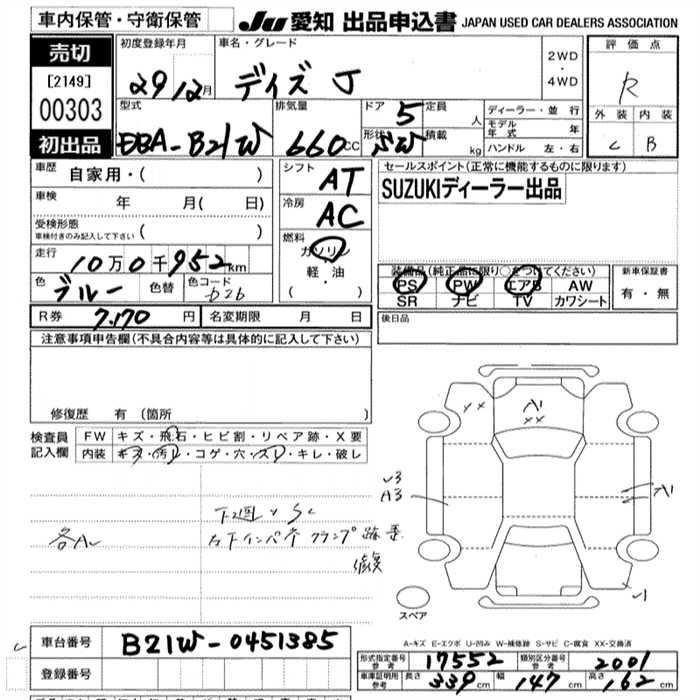 車内保管・守衛保管
JU 愛知 出品申込書 JAPAN USED CAR DEALERS ASSOCIATION
売切
[2149]
00303
初出品
初度登録年月
29 12月
車名・グレード
デイズ J
2WD
・
4WD
評価点
R
外装 内装
C B
型式
DBA-B21W
排気量
660cc
ドア 5
形状 SW
定員 人
積載 kg
ディーラー・並行
モデル年式 年
ハンドル 左・右
車歴
自家用・( )
車検 年 月( 日)
受検形態
車検付きのみ記入して下さい ( )
走行
10万0千952km
色 ブルー 色替 色コード
シフト AT
冷房 AC
燃料
ガソリン
軽・油
( ・ )
セールスポイント(正常に機能するものに限ります)
SUZUKIディーラー出品
装備品(純正品に限り○をつけてください)
PS PW エアB AW
SR ナビ TV カワシート
新車保証書
有・無
R券 7,170 円 名変期限 月 日
後日品
注意事項申告欄(不具合内容等は具体的に記入して下さい)
修復歴 有(箇所 )
検査員
記入欄
FW キズ・飛石・ヒビ割・リペア跡・X要
内装 キズ・汚れ・コゲ・穴・スレ・キレ・破レ
下廻り SC
左下インパネ クランプ跡
各A
XX
A1
XX
A3
A1
スペア
A-キズ E-エクボ U-凹み W-補修跡 S-サビ C-腐食 XX-交換済
車台番号 B21W-0451385
登録番号
形式指定番号 参考 17552 類別区分番号 参考 2001
車庫証明用 参考 長さ 339cm 幅 147cm 高さ 162cm